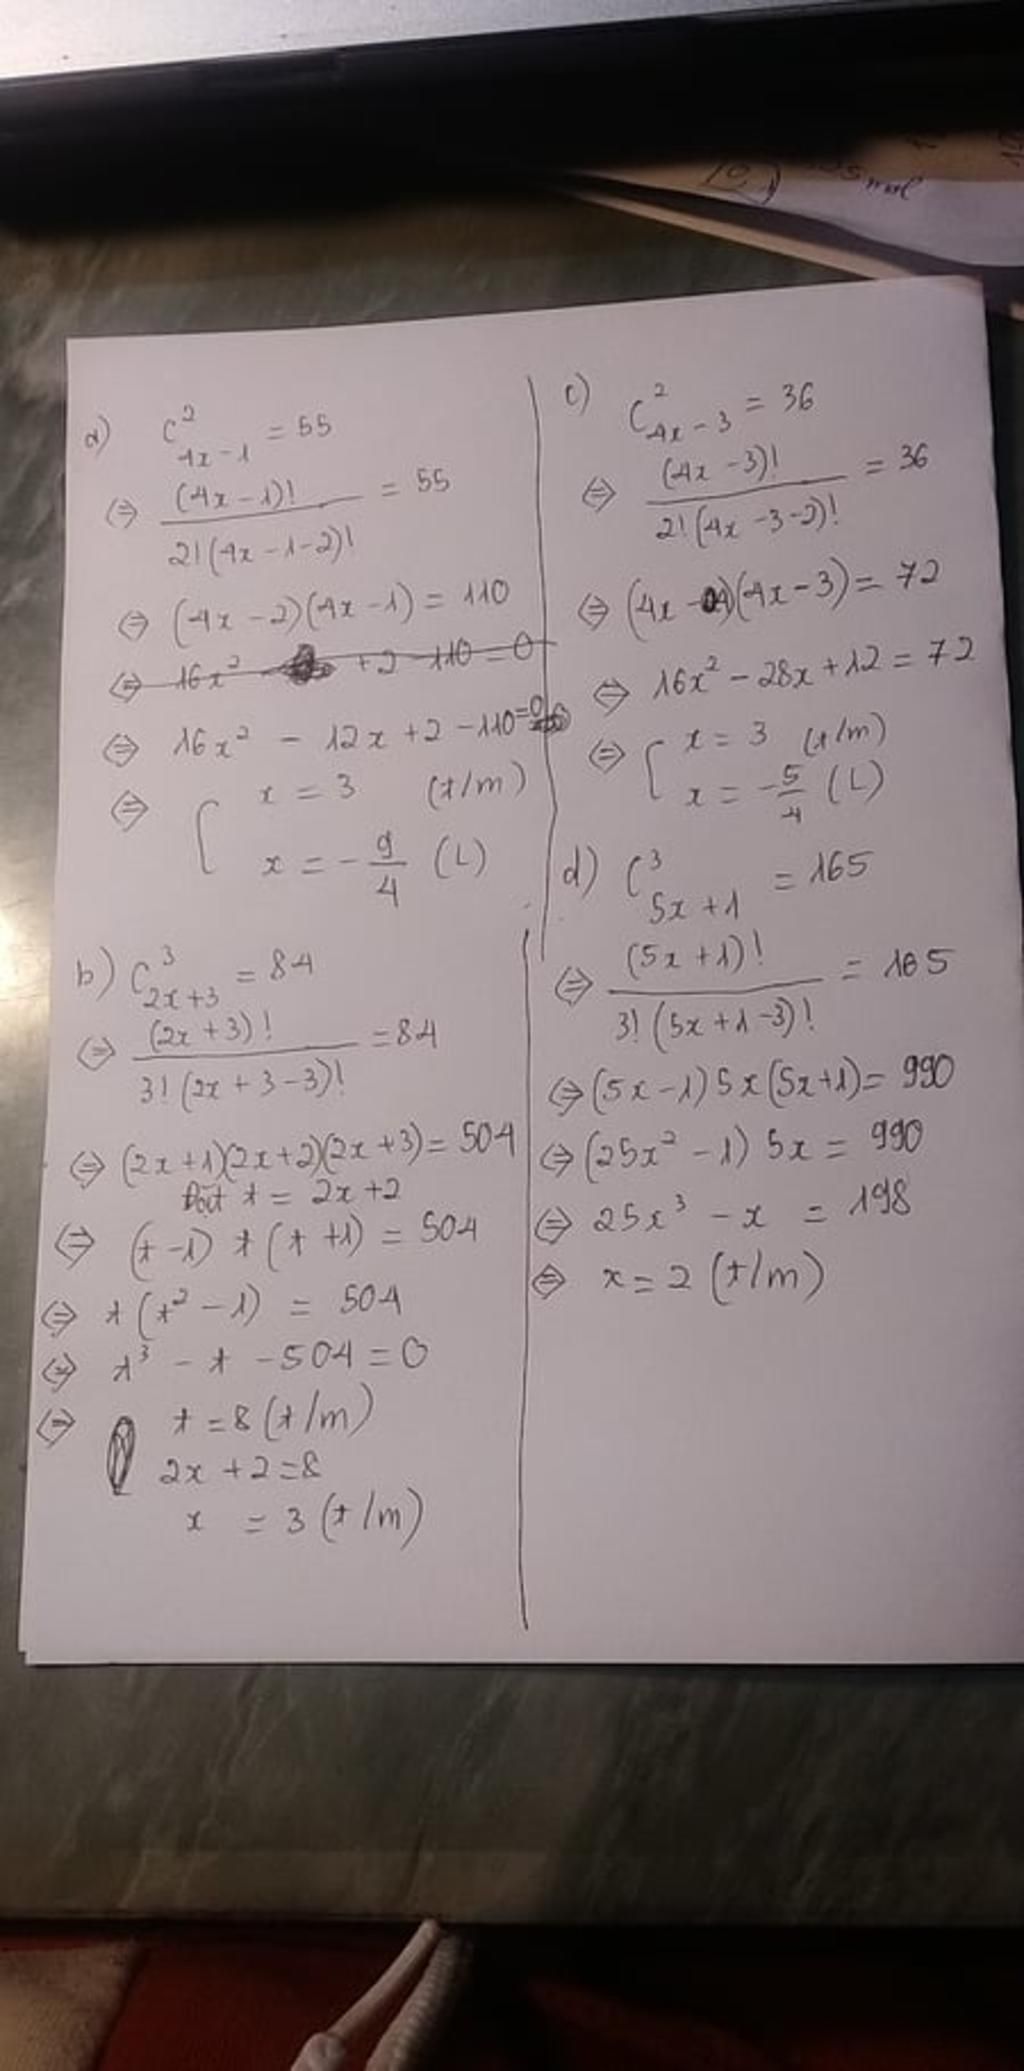 mol
a) C²₄ₓ₋₁ = 55
⇔ (4x - 1)! / 2!(4x - 1 - 2)! = 55
⇔ (4x - 2)(4x - 1) = 110
⇔ 16x² + 2 - 110 = 0
⇔ 16x² - 12x + 2 - 110 = 0
⇔ [ x = 3 (t/m)
x = -9/4 (L)
b) C³₂ₓ₊₃ = 84
⇔ (2x + 3)! / 3!(2x + 3 - 3)! = 84
⇔ (2x + 1)(2x + 2)(2x + 3) = 504
Đặt t = 2x + 2
⇔ (t - 1) t (t + 1) = 504
⇔ t(t² - 1) = 504
⇔ t³ - t - 504 = 0
⇔ t = 8 (t/m)
2x + 2 = 8
x = 3 (t/m)
c) C²₄ₓ₋₃ = 36
⇔ (4x - 3)! / 2!(4x - 3 - 2)! = 36
⇔ (4x - 4)(4x - 3) = 72
⇔ 16x² - 28x + 12 = 72
⇔ [ x = 3 (t/m)
x = -5/4 (L)
d) C³₅ₓ₊₁ = 165
⇔ (5x + 1)! / 3!(5x + 1 - 3)! = 165
⇔ (5x - 1) 5x (5x + 1) = 990
⇔ (25x² - 1) 5x = 990
⇔ 25x³ - x = 198
⇔ x = 2 (t/m)